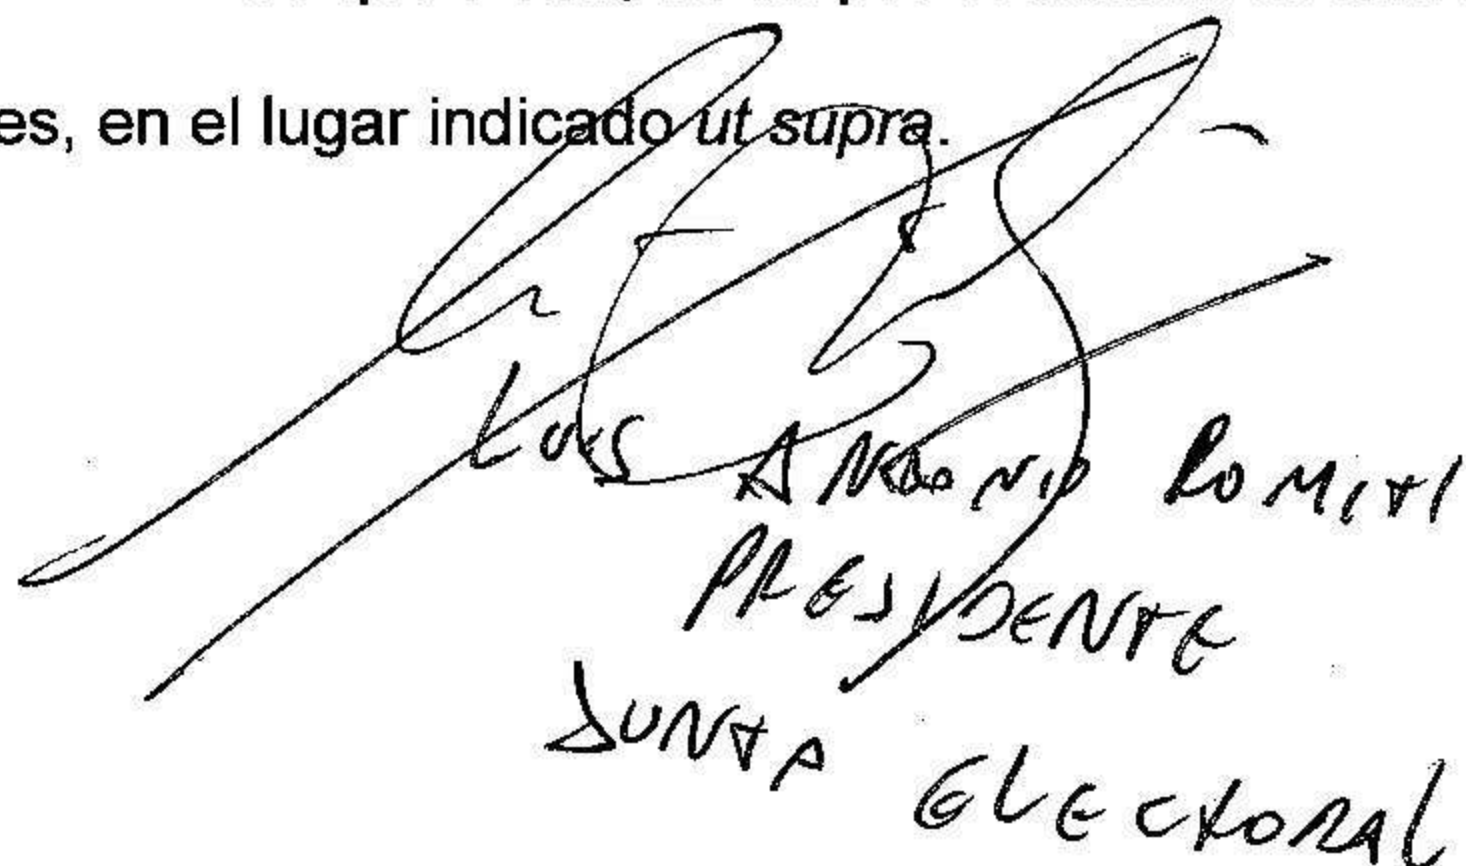 es, en el lugar indicado ut supra.
LUIS ANTONIO ROMITI
PRESIDENTE
JUNTA ELECTORAL